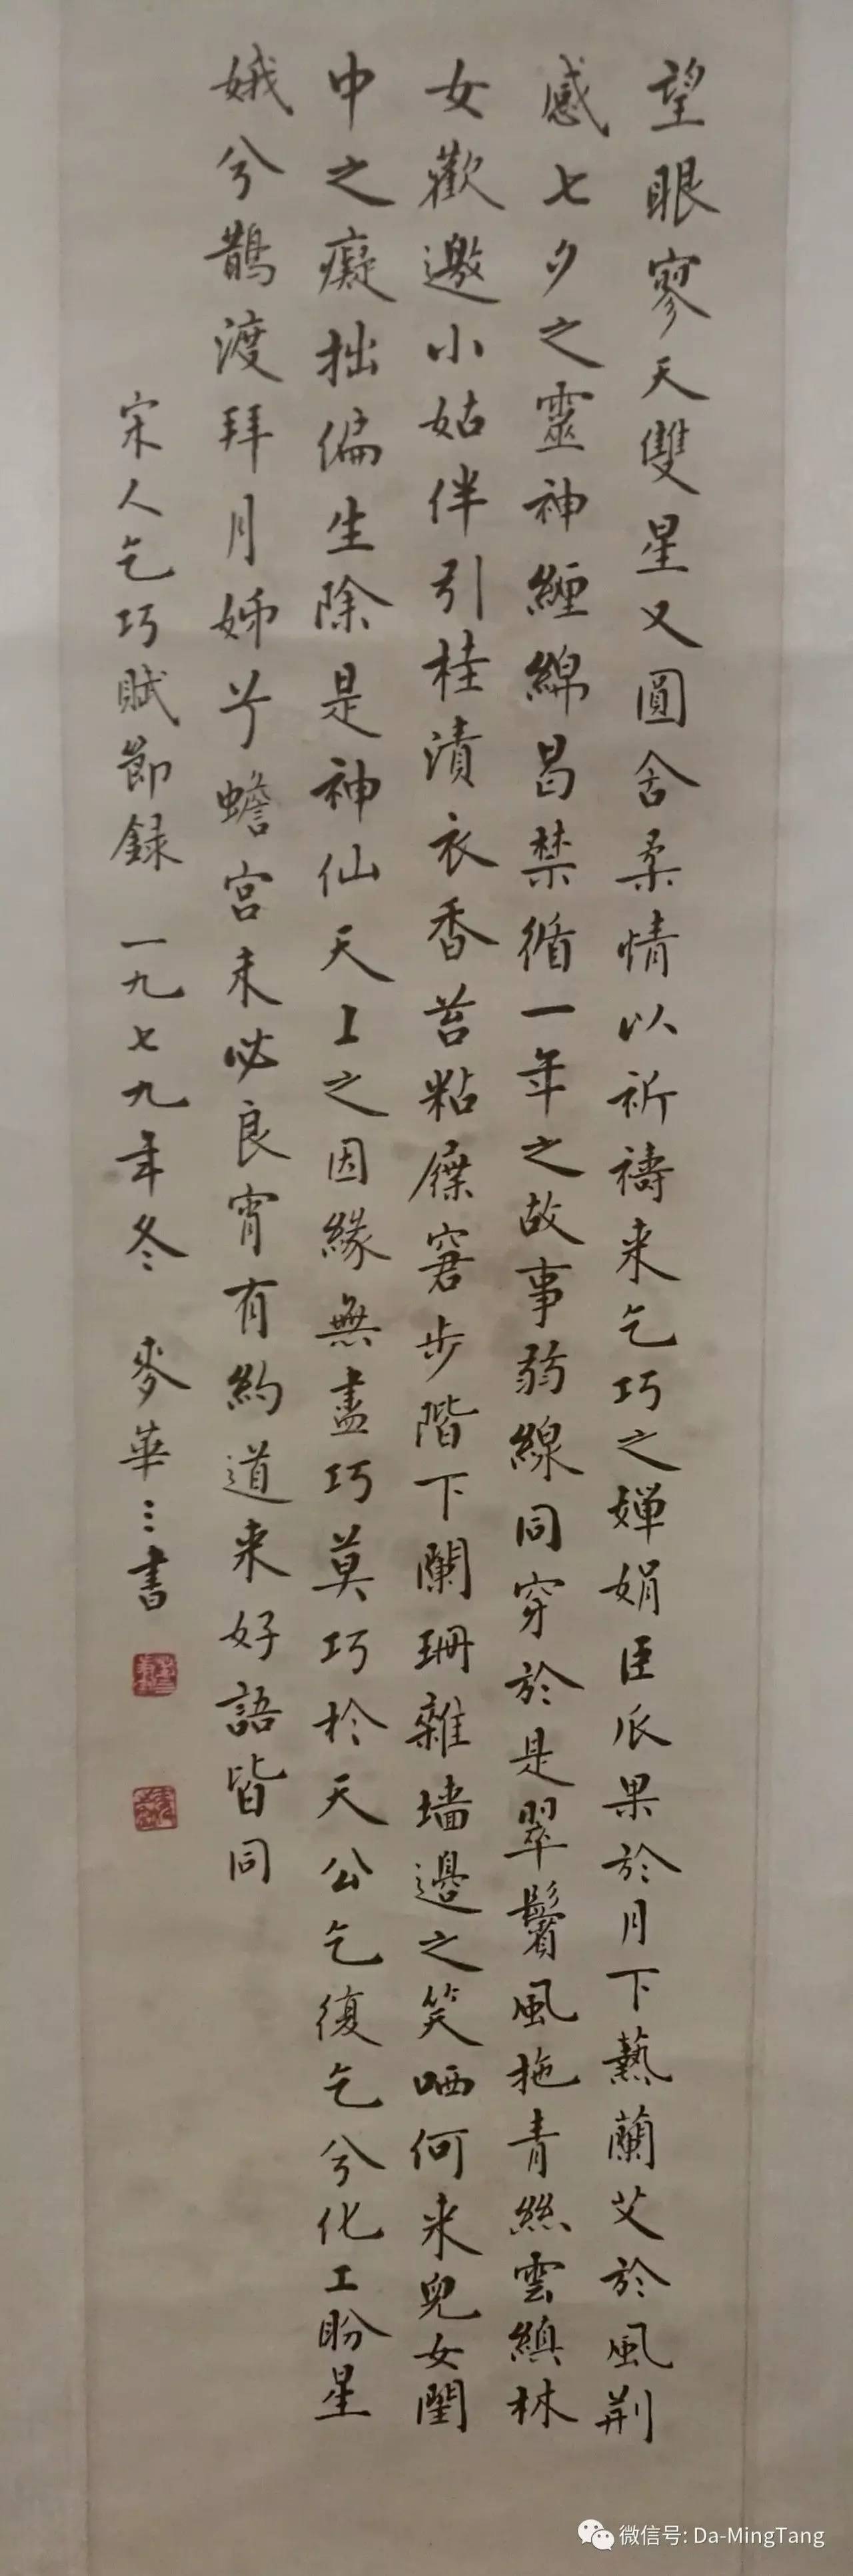 望眼寥天雙星又圓舍柔情以祈禱来乞巧之嬋娟臣瓜果於月下爇蘭艾於風荆
感七夕之靈神纏綿曷禁循一年之故事弱線同穿於是翠鬢風拖青絲雲縝林
女歡邀小姑伴引桂漬衣香苔粘屧窘步階下闌珊雜墻邊之笑哂何来兒女閨
中之癡拙偏生除是神仙天上之因緣無盡巧莫巧於天公乞復乞兮化工盼星
娥兮鵲渡拜月姊兮蟾宮未必良宵有約道来好語皆同
宋人乞巧賦節録 一九七九年冬 麥華三書
微信号: Da-MingTang